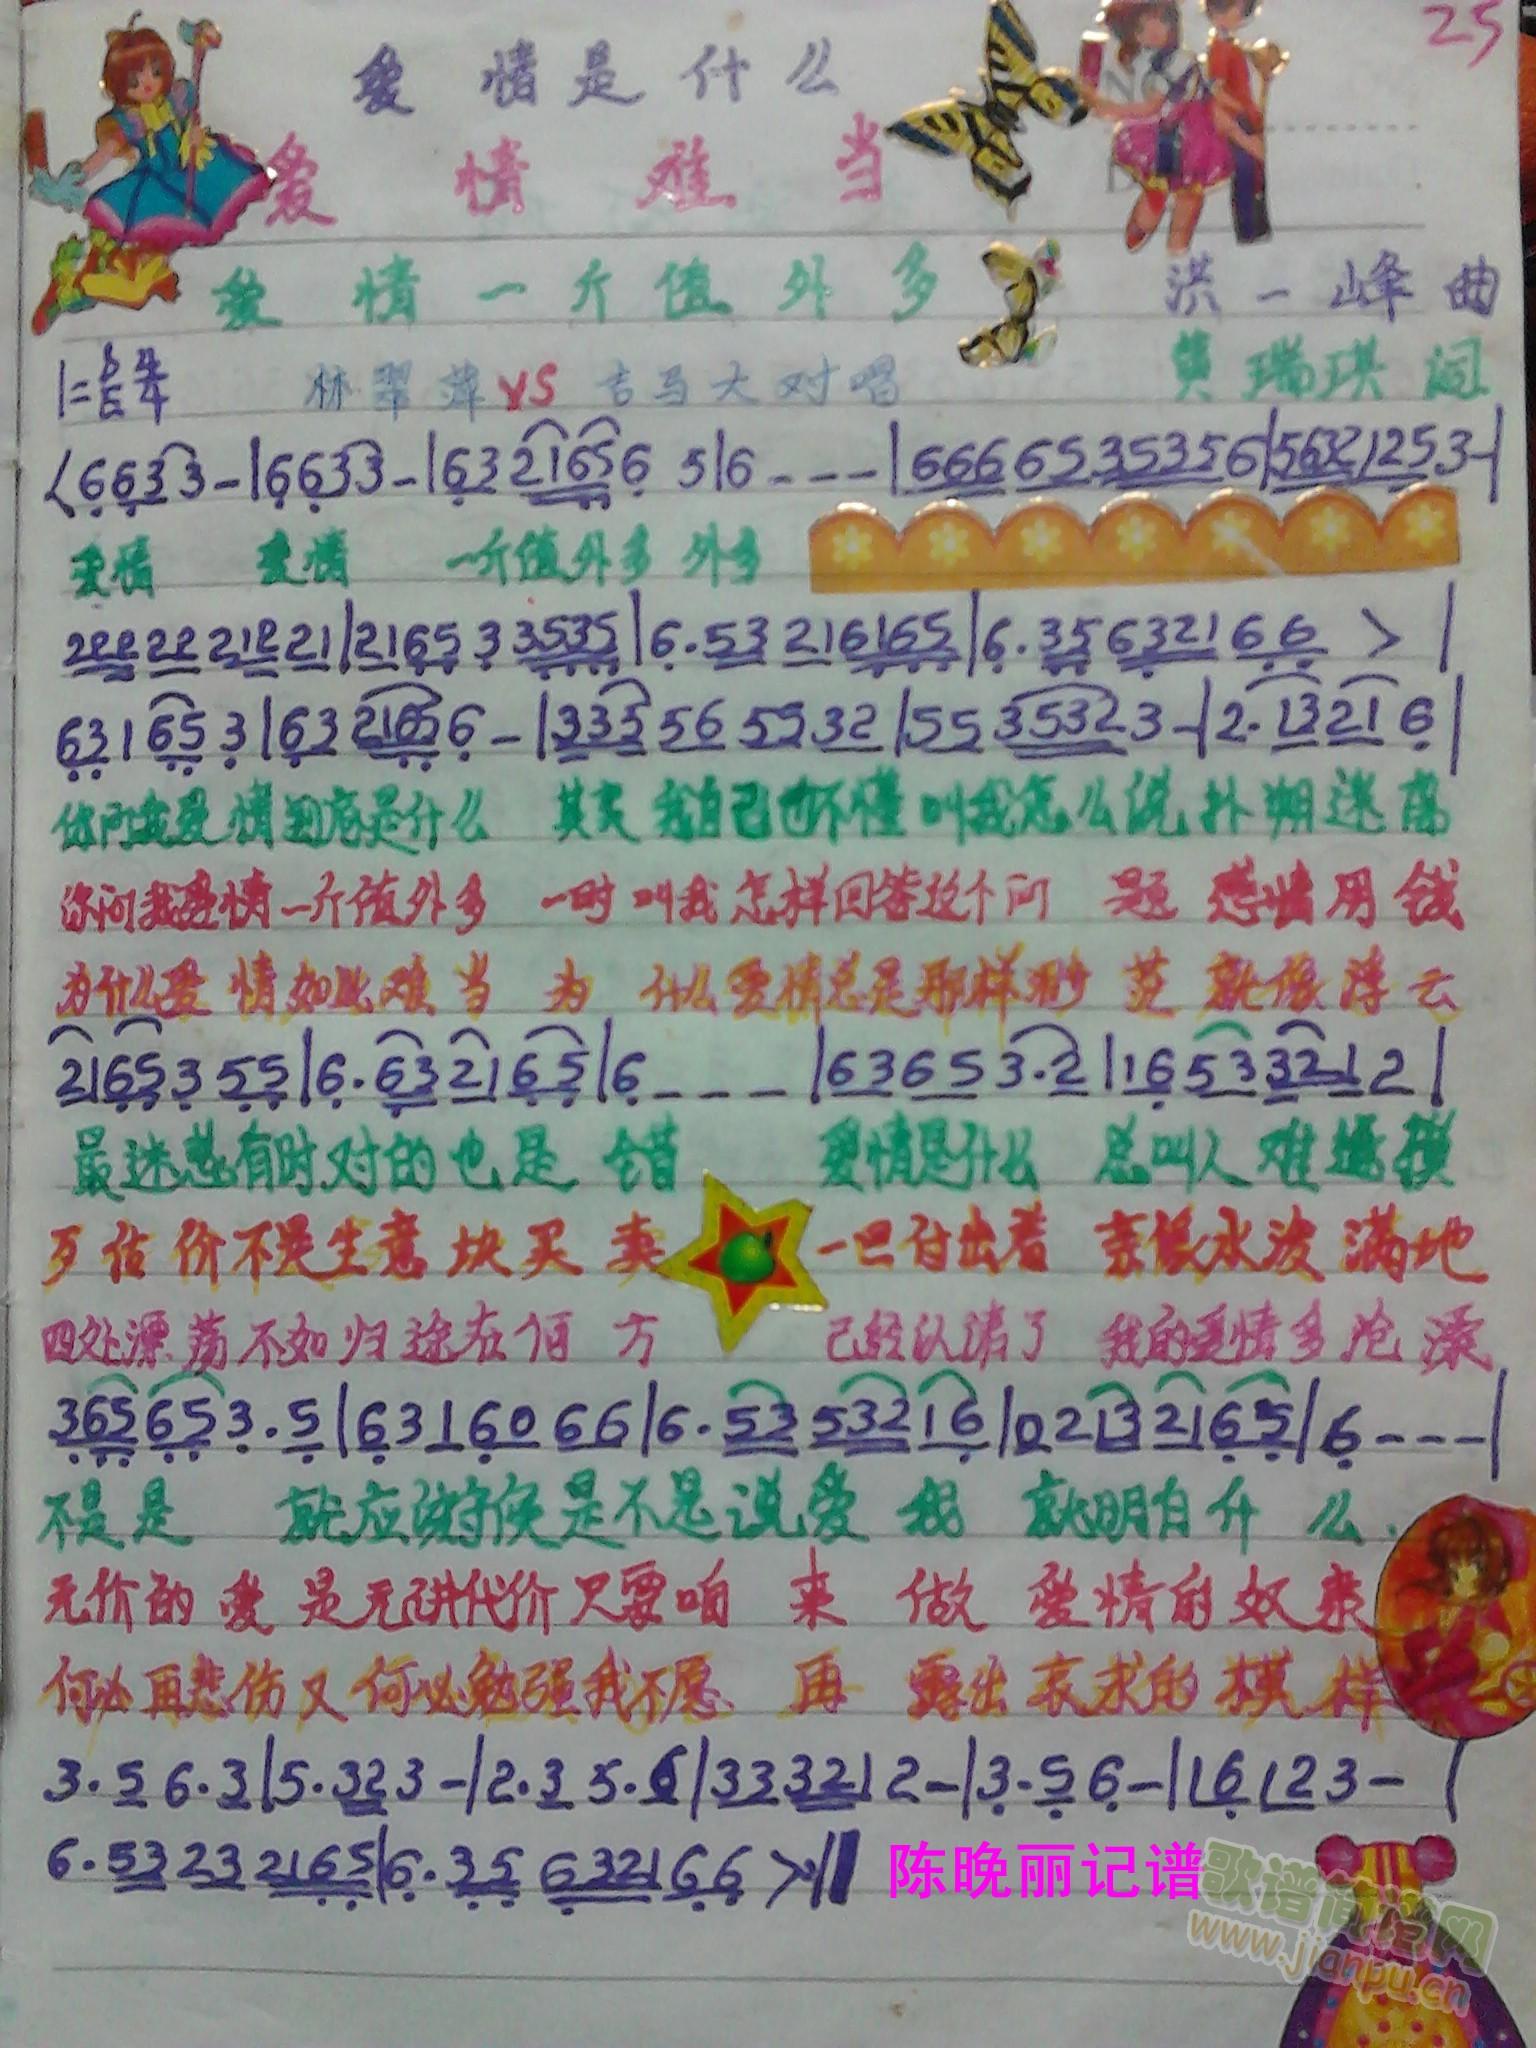 25
爱情是什么
爱情难当
爱情一斤值外多 洪一峰曲
林翠萍VS吉马大对唱 黄瑞琪词
<6633-|6633-|6321656 5|6---|666 65 35356|5632125 3-|
爱情 爱情 一斤值外多 外多
222 22 212 21|2165 3 3535|6.53 216165|6.35 6321 66 >|
631653|63 21656-|333 56 55 32|55 3532 3-|2.13216|
你问我爱情到底是什么 其实我自己也不懂叫我怎么说扑朔迷离
你问我爱情一斤值外多 一时叫我怎样回答这个问题 感情用钱
为什么爱情如此难当 为什么爱情总是那样渺茫 就像浮云
2165 3 55|6.63 21 65|6---|63653.2|16533212|
最迷惑有时对的也是错 爱情是什么 总叫人难捉摸
歹估价不是生意块买卖 一旦付出着 亲像水泼满地
四处漂荡不知归途在何方 已经认清了 我的爱情多沧
365653.5|631606 6|6.53 532 16|02132165|6---|
不是是 就应该守候是不是说爱我 就明白什么.
无价的爱是无讲代价只要咱来做爱情的奴隶
何必再悲伤又何必勉强我不愿再露出哀求的模样
3.56.3|5.323-|2.35.6|3332 12-|3.56-|16123-|
6.53 23 2165|6.35 632166>||
陈晚丽记谱
歌谱简谱网
www.jianpu.cn